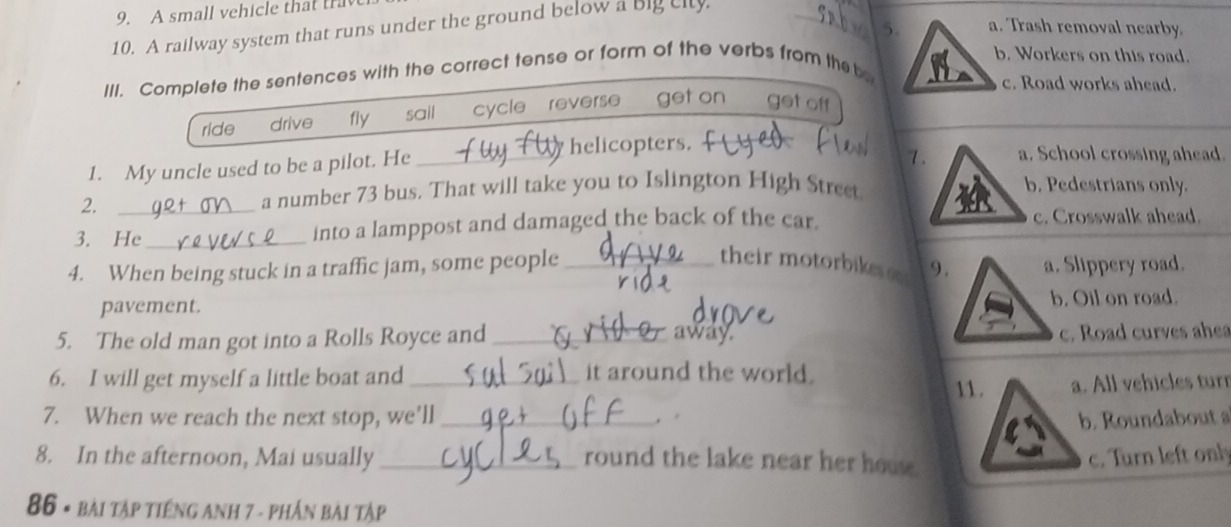 9. A small vehicle that
10. A railway system that runs under the ground below a big city.
III. Complete the sentences with the correct tense or form of the verbs from the
ride drive fly sail cycle reverse get on get off
1. My uncle used to be a pilot. He fly helicopters. flyed flew
2. get on a number 73 bus. That will take you to Islington High Street.
3. He reverse into a lamppost and damaged the back of the car.
4. When being stuck in a traffic jam, some people drive their motorbikes
ride
pavement.
drove
5. The old man got into a Rolls Royce and ride away.
6. I will get myself a little boat and sail it around the world.
7. When we reach the next stop, we'll get off.
8. In the afternoon, Mai usually cycles round the lake near her house.
86 • BÀI TẬP TIẾNG ANH 7 - PHẦN BÀI TẬP
5.
a. Trash removal nearby.
b. Workers on this road.
c. Road works ahead.
7.
a. School crossing ahead.
b. Pedestrians only.
c. Crosswalk ahead.
9.
a. Slippery road.
b. Oil on road.
c. Road curves
11.
a. All vehicles
b. Roundabout
c. Turn left only